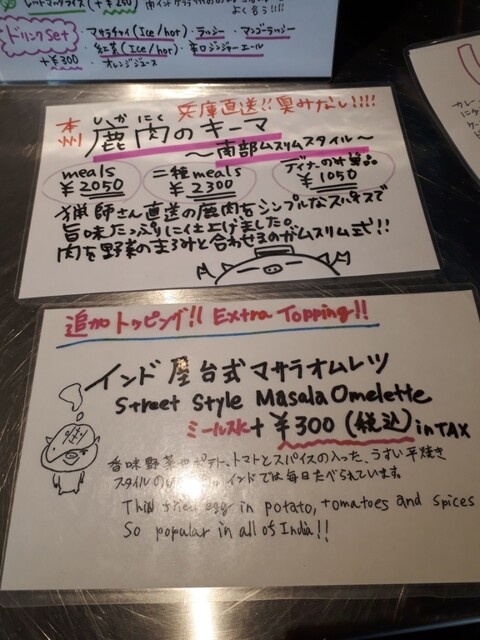 (+¥250)
ドリンクSet
+¥300
マサラチャイ(Ice/hot)・ラッシー・マンゴーラッシー
紅茶(Ice/hot)・辛口ジンジャーエール
オレンジジュース
兵庫直送!!臭みなし!!!!
本州
鹿肉のキーマ
しかにく
～南部ムスリムスタイル～
meals
¥2050
二種meals
¥2300
ディナーの単品
¥1050
猟師さん直送の鹿肉をシンプルなスパイスで
旨味たっぷりに仕上げました。
肉を野菜のまろみと合わせるのがムスリム式!!
追加トッピング!! Extra Topping!!
インド屋台式マサラオムレツ
Street Style Masala Omelette
ミールスに+¥300(税込)in TAX
香味野菜やポテト、トマトとスパイスの入った、うすい平焼き
スタイルの インドでは毎日たべられています。
Thin fried egg in potato, tomatoes and spices
So popular in all of India!!